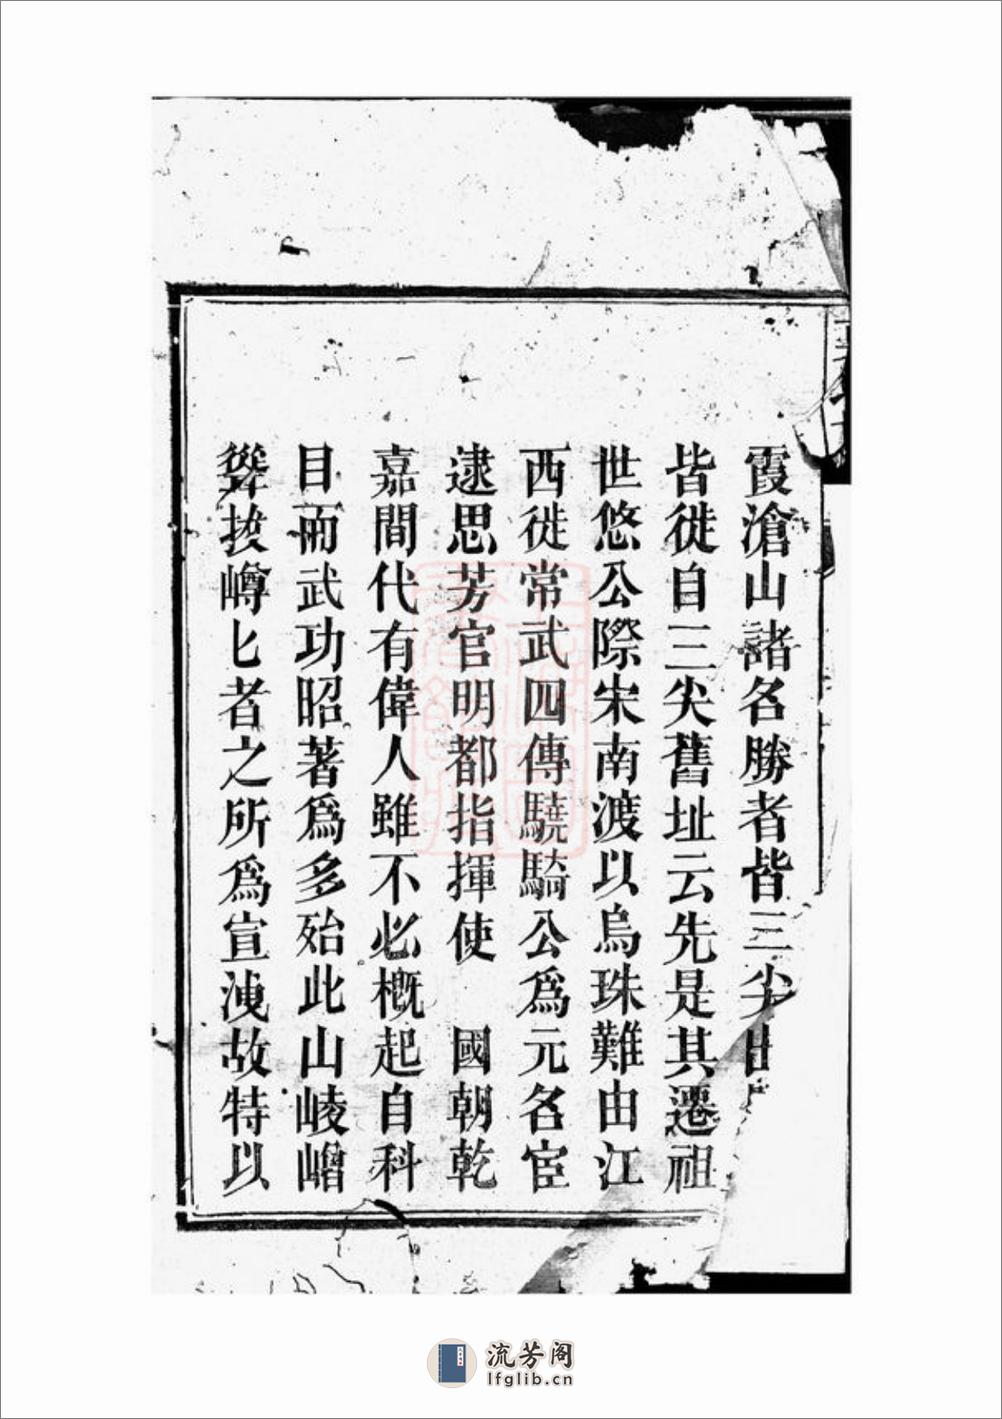 霞滄山諸名勝者皆三尖
皆徙自三尖舊址云先是其遷祖
世悠公際宋南渡以烏珠難由江
西徙常武四傳驍騎公爲元名宦
逮思芳官明都指揮使　國朝乾
嘉間代有偉人雖不必概起自科
目而武功昭著爲多殆此山崚嶒
聳拔嶟匕者之所爲宣洩故特以
流芳阁
lfglib.cn